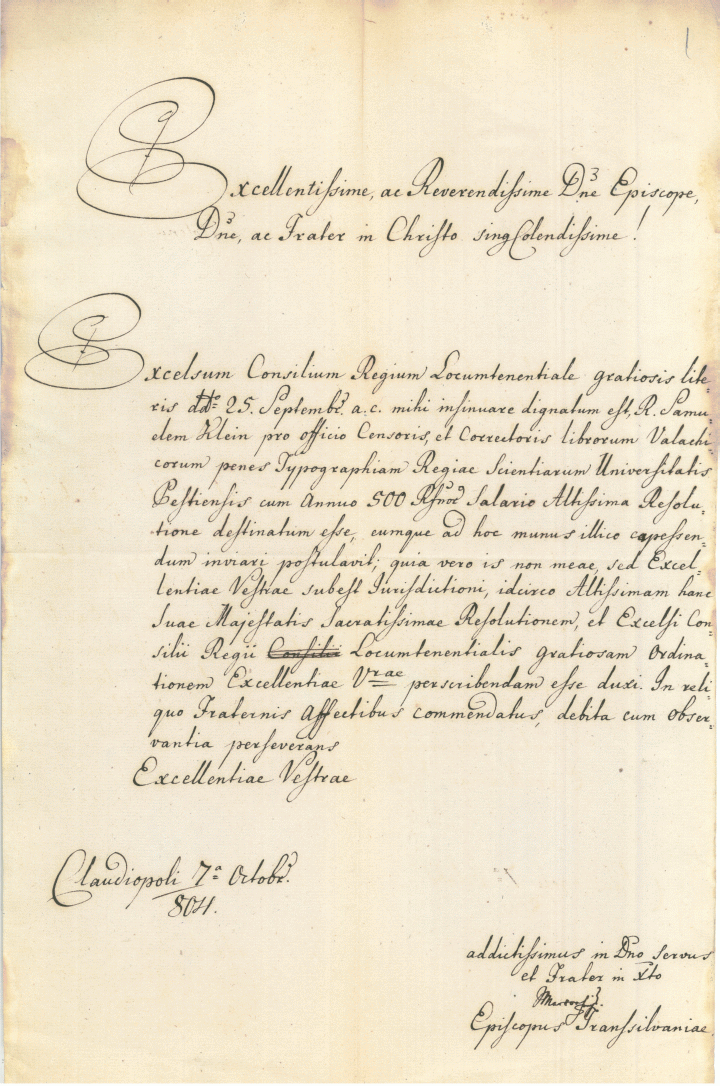 1
Excellentissime, ac Reverendissime Dne Episcope,
Dne, ac Frater in Christo sing Colendissime!
Excelsum Consilium Regium Locumtenentiale gratiosis lite-
ris ddto 25. Septembr. a. c. mihi insinuare dignatum est, R. Samu-
elem Klein pro officio Censoris, et Correctoris librorum Valachi-
corum penes Typographiam Regiae Scientiarum Universitatis
Pestiensis cum Annuo 500 Rfnor Salario Altissima Resolu-
tione destinatum esse, eumque ad hoc munus illico capessen-
dum inviari postulavit; quia vero is non meae, sed Excel-
lentiae Vestrae subest Jurisdictioni, idcirco Altissimam hanc
Suae Majestatis Sacratissimae Resolutionem, et Excelsi Con-
silii Regii Consilii Locumtenentialis gratiosam Ordina-
tionem Excellentiae Vrae perscribendam esse duxi. In reli-
quo Fraternis Affectibus commendatus, debita cum obser-
vantia perseverans
Excellentiae Vestrae
Claudiopoli 7a Octobr.
804.
addictissimus in Dno servus
et Frater in Xto
Episcopus Transsilvaniae